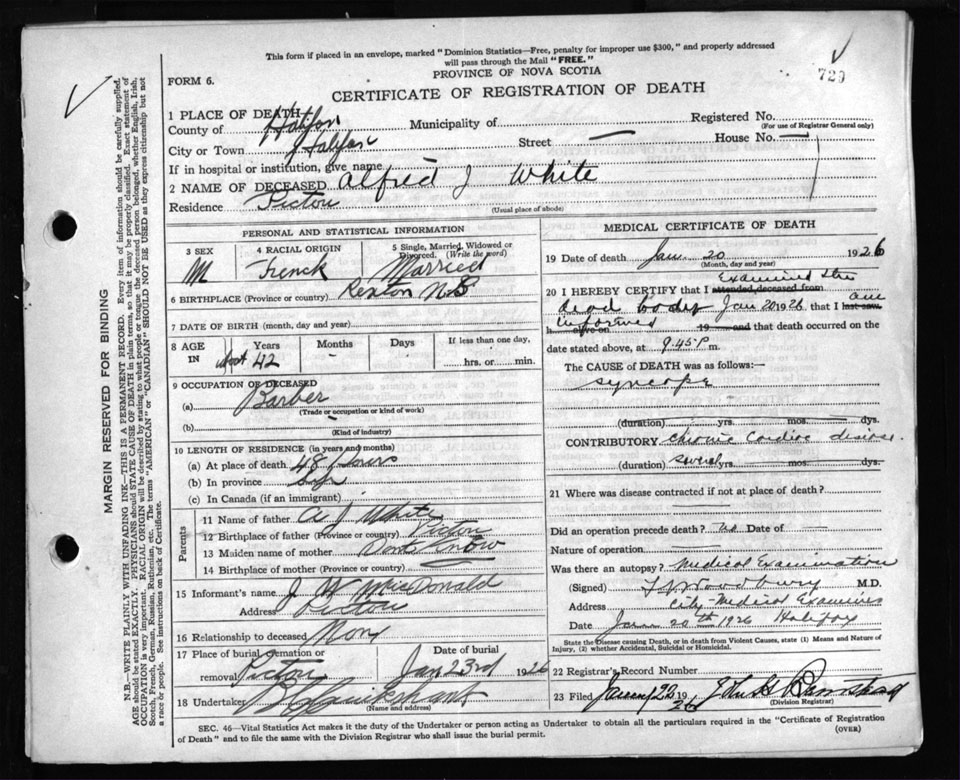 This form if placed in an envelope, marked "Dominion Statistics—Free, penalty for improper use $300," and properly addressed
will pass through the Mail "FREE."
FORM 6.
PROVINCE OF NOVA SCOTIA
729
CERTIFICATE OF REGISTRATION OF DEATH
1 PLACE OF DEATH
County of Halifax Municipality of Registered No.
(For use of Registrar General only)
City or Town Halifax Street — House No. —
If in hospital or institution, give name
2 NAME OF DECEASED Alfred J White
Residence Pictou
(Usual place of abode)
PERSONAL AND STATISTICAL INFORMATION
3 SEX 4 RACIAL ORIGIN 5 Single, Married, Widowed or Divorced. (Write the word)
M French Married
6 BIRTHPLACE (Province or country) Rexton N.B
7 DATE OF BIRTH (month, day and year)
8 AGE IN Years Months Days If less than one day,
abot 42 - - hrs. or min.
9 OCCUPATION OF DECEASED
(a) Barber
(Trade or occupation or kind of work)
(b)
(Kind of industry)
10 LENGTH OF RESIDENCE (in years and months)
(a) At place of death 48 hours
(b) In province
(c) In Canada (if an immigrant)
Parents
11 Name of father A J White
12 Birthplace of father (Province or country) Pictou
13 Maiden name of mother Dont Know
14 Birthplace of mother (Province or country)
15 Informant's name J W MacDonald
Address Pictou
16 Relationship to deceased None
17 Place of burial, cremation or removal Pictou Date of burial Jan 23rd 1926
18 Undertaker
(Name and address)
MEDICAL CERTIFICATE OF DEATH
19 Date of death Jan. 20 1926
(Month, day and year)
20 I HEREBY CERTIFY that I attended deceased from Examined the
dead body Jan 20 1926 that I last saw am
h alive on informed 19 and that death occurred on the
date stated above, at 9.45 P m.
The CAUSE of DEATH was as follows:—
Syncope
(duration) yrs. mos. dys.
CONTRIBUTORY Chronic Cardiac disease.
(duration) several yrs. mos. dys.
21 Where was disease contracted if not at place of death?
Did an operation precede death? No Date of —
Nature of operation —
Was there an autopsy? Medical Examination
(Signed) Woodbury M.D.
Address City Medical Examiner
Date Jan 20th 1926 Halifax
State the Disease causing Death, or in death from Violent Causes, state (1) Means and Nature of
Injury, (2) whether Accidental, Suicidal or Homicidal.
22 Registrar's Record Number
23 Filed 26 1926
(Division Registrar)
SEC. 46—Vital Statistics Act makes it the duty of the Undertaker or person acting as Undertaker to obtain all the particulars required in the "Certificate of Registration
of Death" and to file the same with the Division Registrar who shall issue the burial permit.
(OVER)
MARGIN RESERVED FOR BINDING
N.B.—WRITE PLAINLY WITH UNFADING INK—THIS IS A PERMANENT RECORD. Every item of information should be carefully supplied.
AGE should be stated EXACTLY. PHYSICIANS should STATE CAUSE OF DEATH in plain terms, so that it may be properly classified. Exact statement of
OCCUPATION is very important. RACIAL ORIGIN will be described by stating to what people or tongue the deceased person belonged, whether English, Irish,
Scotch, French, German, Russian, Ruthenian, etc. The terms "AMERICAN" or "CANADIAN" SHOULD NOT BE USED as they express citizenship but not
a race or people. See instructions on back of Certificate.